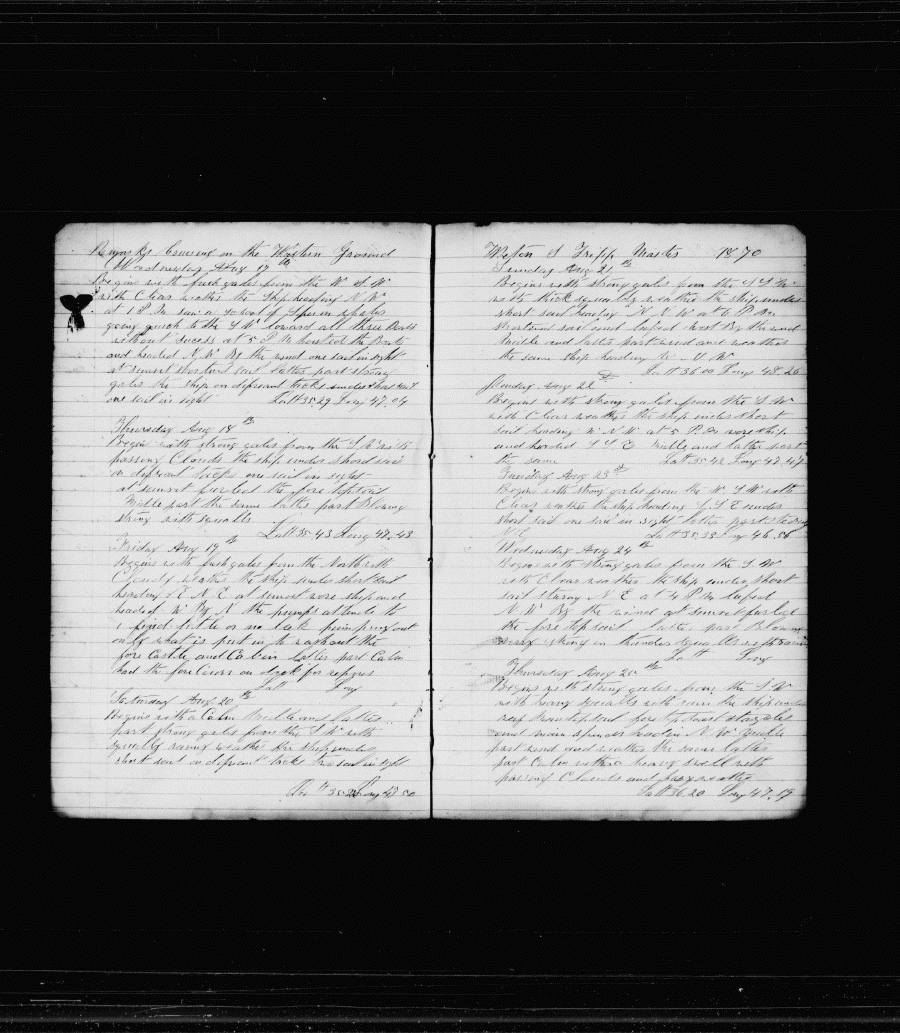 Remarks Cruised on the Western Ground
Wednesday Aug 17th
Begins with fresh gales from the W S W
with Clear weather the Ship heading N W
at 1 P M saw a school of Sperm whales
going quick to the S W lowered all three Boats
without sucess at 5 P M hoisted the Boats
and headed N W By the wind one sail in sight
at sunset shortend sail latter part strong
gales the ship on different tacks under short sail
one sail in sight Latt 35.29 Long 47.04
Thursday Aug 18th
Begins with strong gales from the S W with
passing Clouds the ship under short sail
on different tacks one sail in sight
at sunset furled the fore topsail
Midle part the same latter part Blowing
strong with squalls
Latt 35.43 Long 47.43
Friday Aug 19th
Begins with fresh gales from the North with
Cloudy weather the ship under short sail
heading E N E at sunset wore ship and
headed W By N the pumps attended to
little or no leak pump out
only what is put in to washout the
fore Castle and Cabin latter part Calm
had the on deck for repairs
Latt Long
Saturday Aug 20th
Begins with a Calm Midle and latter
part strong gales from the S W with
squally rainy weather the ship under
short sail on different tacks one sail in sight
Latt 35.22 Long 43 50
Weston S Tripp Master 1870
Sunday Aug 21th
Begins with strong gales from the S S W
with thick squally weather the ship under
short sail heading W at 6 P M
shortend sail and lufed By the wind
Midle and latter part wind and weather
the same ship heading W N W
Latt 36 00 Long 48.26
Monday Aug 22
Begins with strong gales from the S W
with Clear weather the ship under short
sail heading W N W at 5 P M wore ship
and headed S S E Midle and latter part
the same Latt 35.42 Long 47.47
Tuesday Aug 23th
Begins with strong gales from the W S W with
Clear weather the ship heading S S E under
short sail one sail in sight latter part steering
N E Latt 35.33 Long 46.56
Wednesday Aug 24th
Begins with strong gales from the S W
with Clear weather the ship under short
sail steering N E at 4 P M lufed
N W By the wind at sunset furled
the fore topsail latter part Blowing
strong in thunder squalls with rain
Latt Long
Thursday Aug 25th
Begins with strong gales from the S W
with heavy squalls with rain the ship under
reef main topsail fore topmast staysail
and main spencer heading N W Midle
part wind and weather the same latter
part Calm with a heavy swell with
passing Clouds and foggy weather
Latt 36.20 Long 47.19